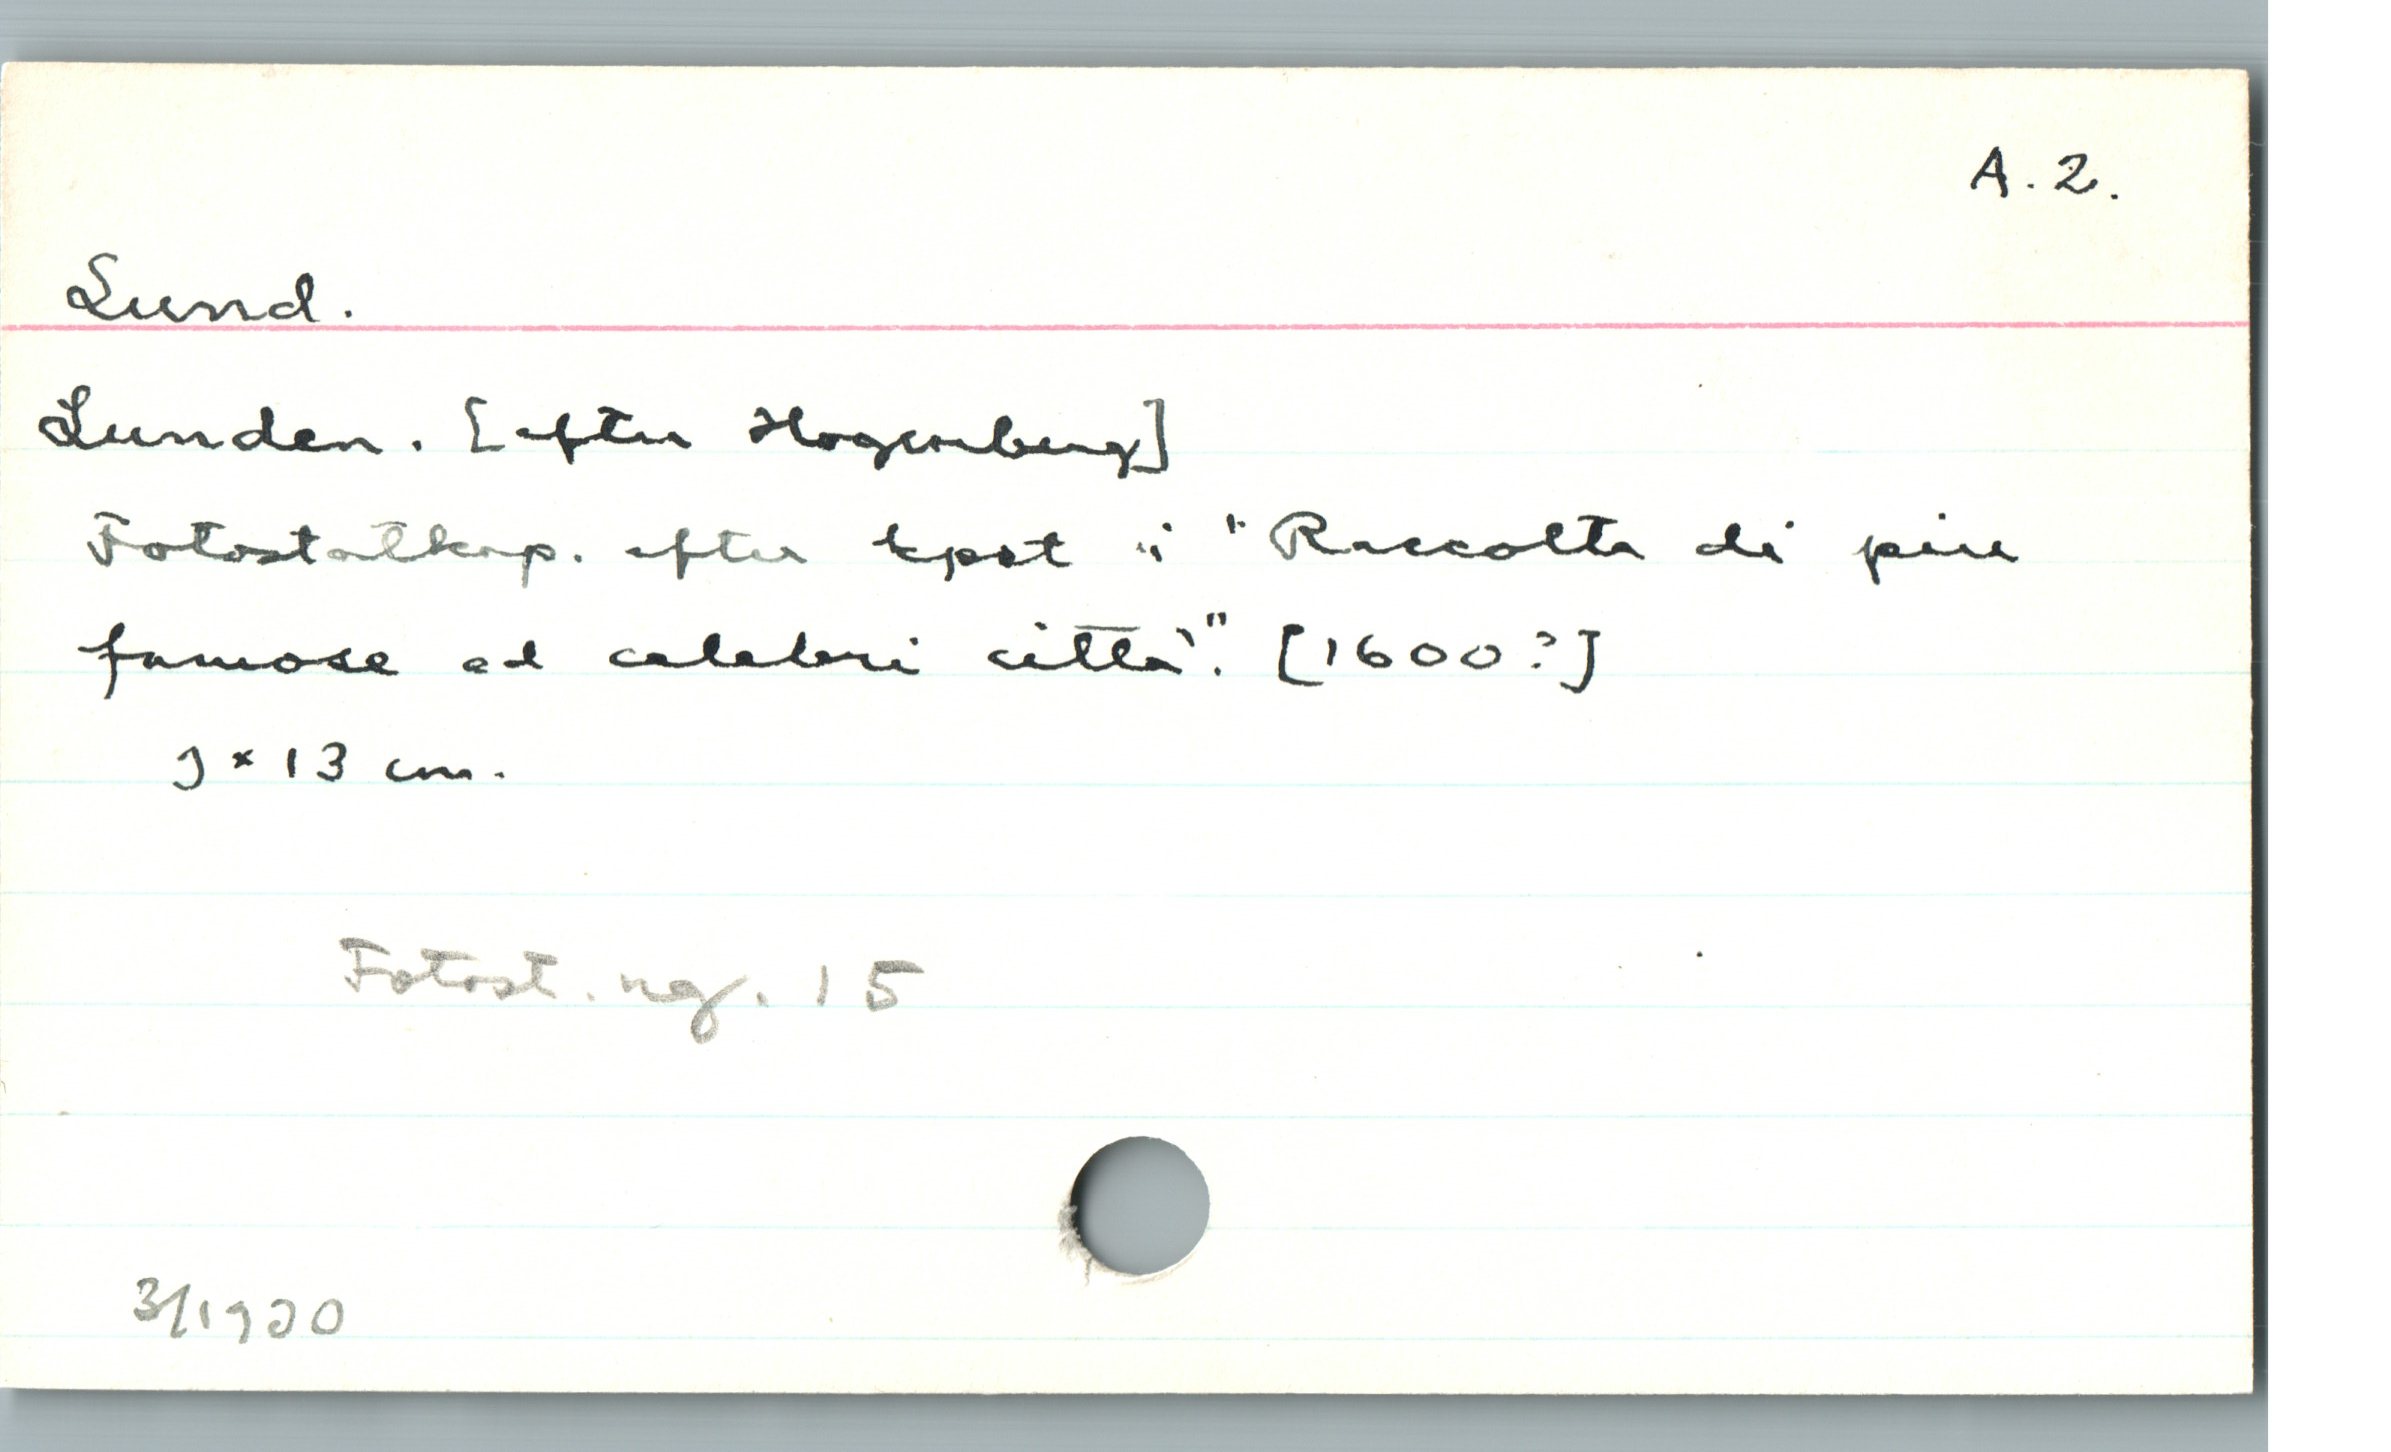 A. 2.
Lund.
Lunden. [efter Hogenberg]
Fotostatkop. efter kpst i "Raccolta di piu
famose ed celebri città". [1600?]
9 × 13 cm.
Fotost. ng. 15
3/1970